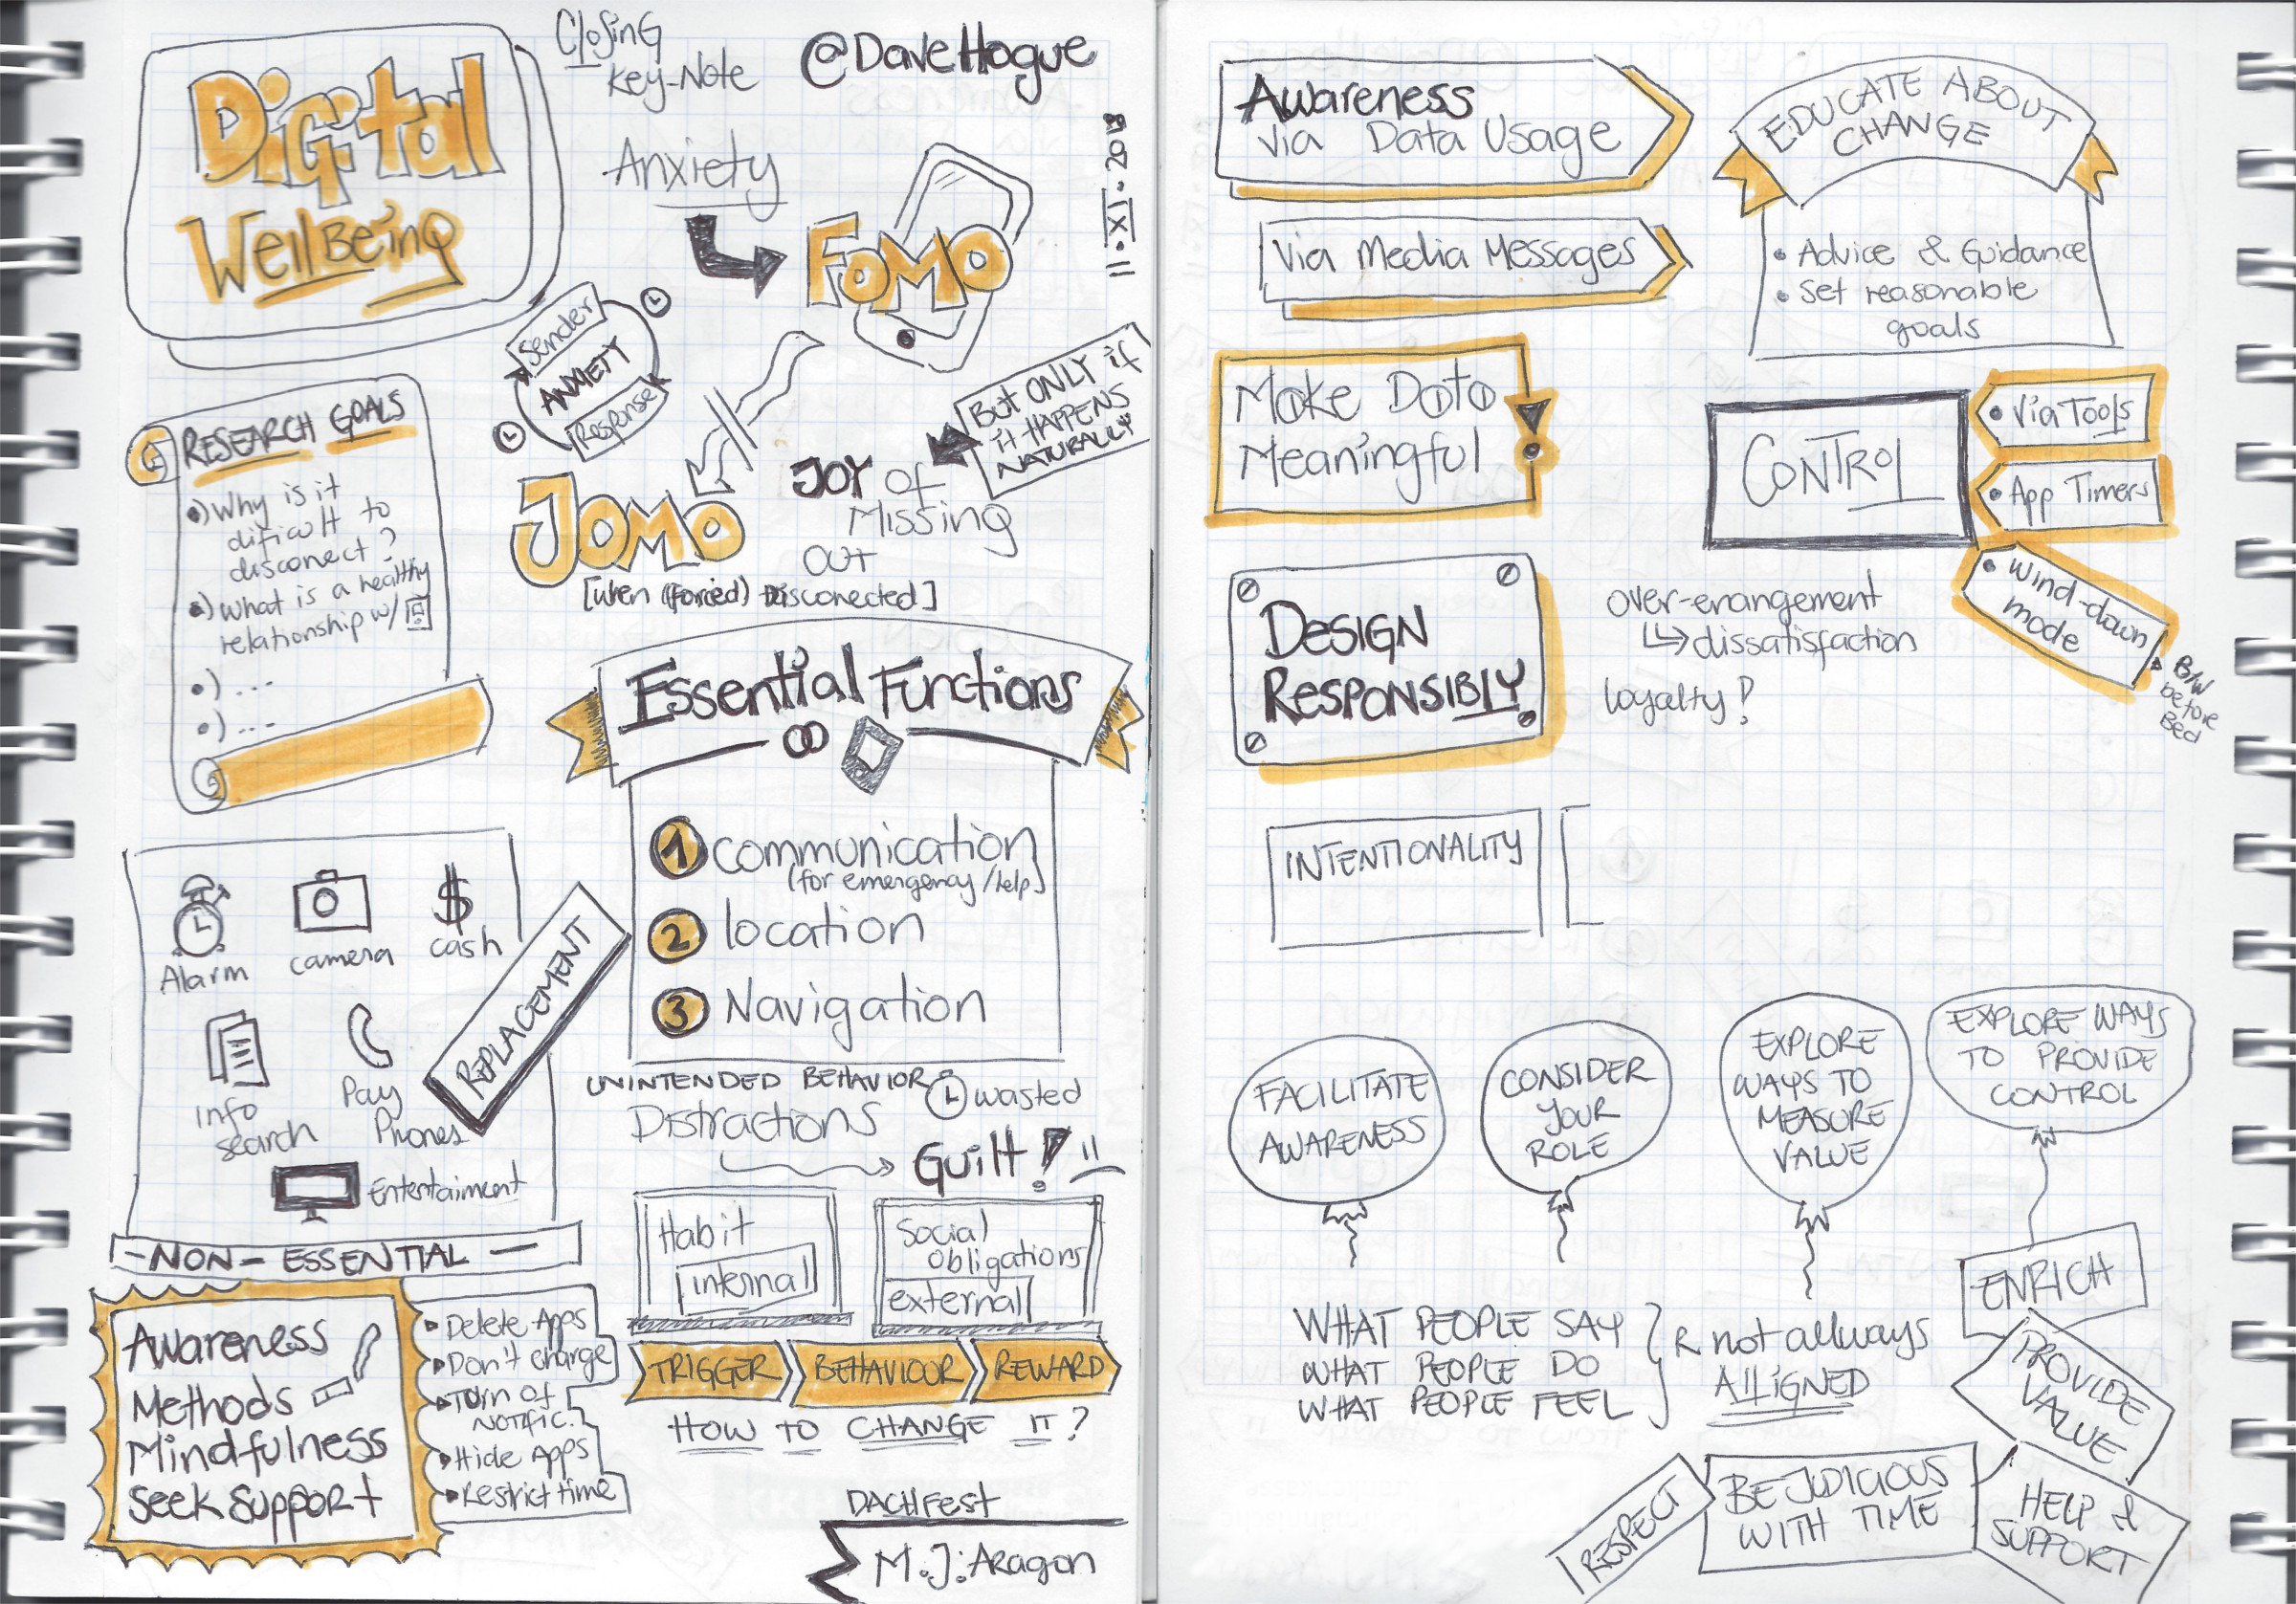 Digital
WellBeing
Closing
Key-Note
@DaveHogue
11.XI.2018
Anxiety
FOMO
Sender
ANXIETY
Response
JOMO
JOY of
Missing
OUT
[when (forced) Disconected]
BUT ONLY if
it HAPPENS
NATURALLY
RESEARCH GOALS
•) Why is it
dificult to
disconect?
•) What is a healthy
relationship w/
•) ...
•) ...
Essential Functions
1 communication
(for emergency/help)
2 location
3 Navigation
Alarm
camera
$
cash
Info
search
Pay
Phones
Entertaiment
REPLACEMENT
- NON - ESSENTIAL -
UNINTENDED BEHAVIOR
Distractions
wasted
Guilt!
Habit
internal
Social
obligations
external
TRIGGER
BEHAVIOUR
REWARD
HOW TO CHANGE IT?
Awareness
Methods
Mindfulness
Seek Support
Delete Apps
Don't charge
Turn of
NOTIFIC.
Hide Apps
Restrict time
DACHFest
M.J. Aragon
Awareness
via Data Usage
via Media Messages
EDUCATE ABOUT
CHANGE
• Advice & Guidance
• Set reasonable
goals
Make Data
Meaningful
CONTROL
• Via Tools
• App Timers
• Wind-down
mode
B/W
before
Bed
DESIGN
RESPONSIBLY
over-enangement
dissatisfaction
loyalty?
INTENTIONALITY
FACILITATE
AWARENESS
CONSIDER
YOUR
ROLE
EXPLORE
WAYS TO
MEASURE
VALUE
EXPLORE WAYS
TO PROVIDE
CONTROL
WHAT PEOPLE SAY
WHAT PEOPLE DO
WHAT PEOPLE FEEL
R not allways
AlliGNED
ENRICH
PROVIDE
VALUE
HELP &
SUPPORT
BE JUDICIOUS
WITH TIME
RESPECT